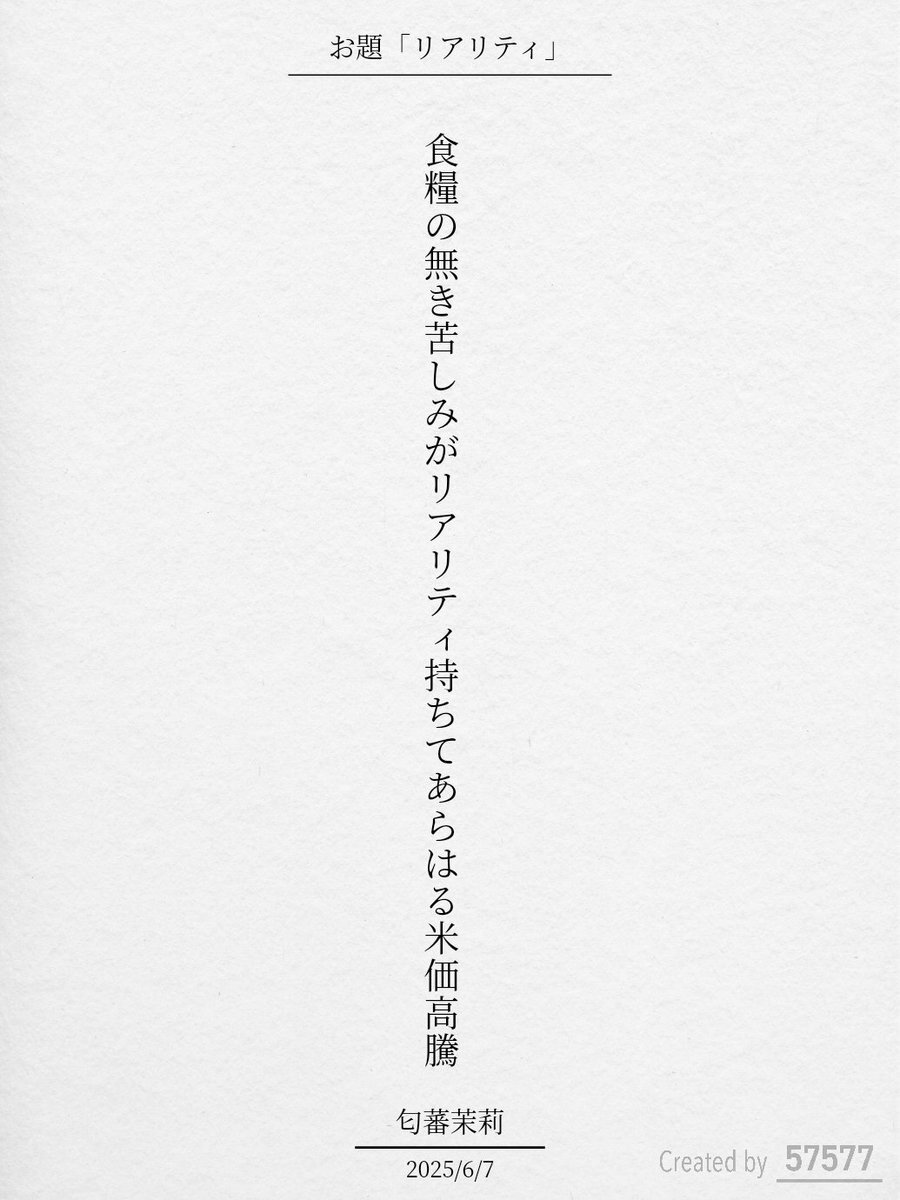 お題「リアリティ」
食糧の無き苦しみがリアリティ持ちてあらはる米価高騰
匂蕃茉莉
2025/6/7
Created by 57577